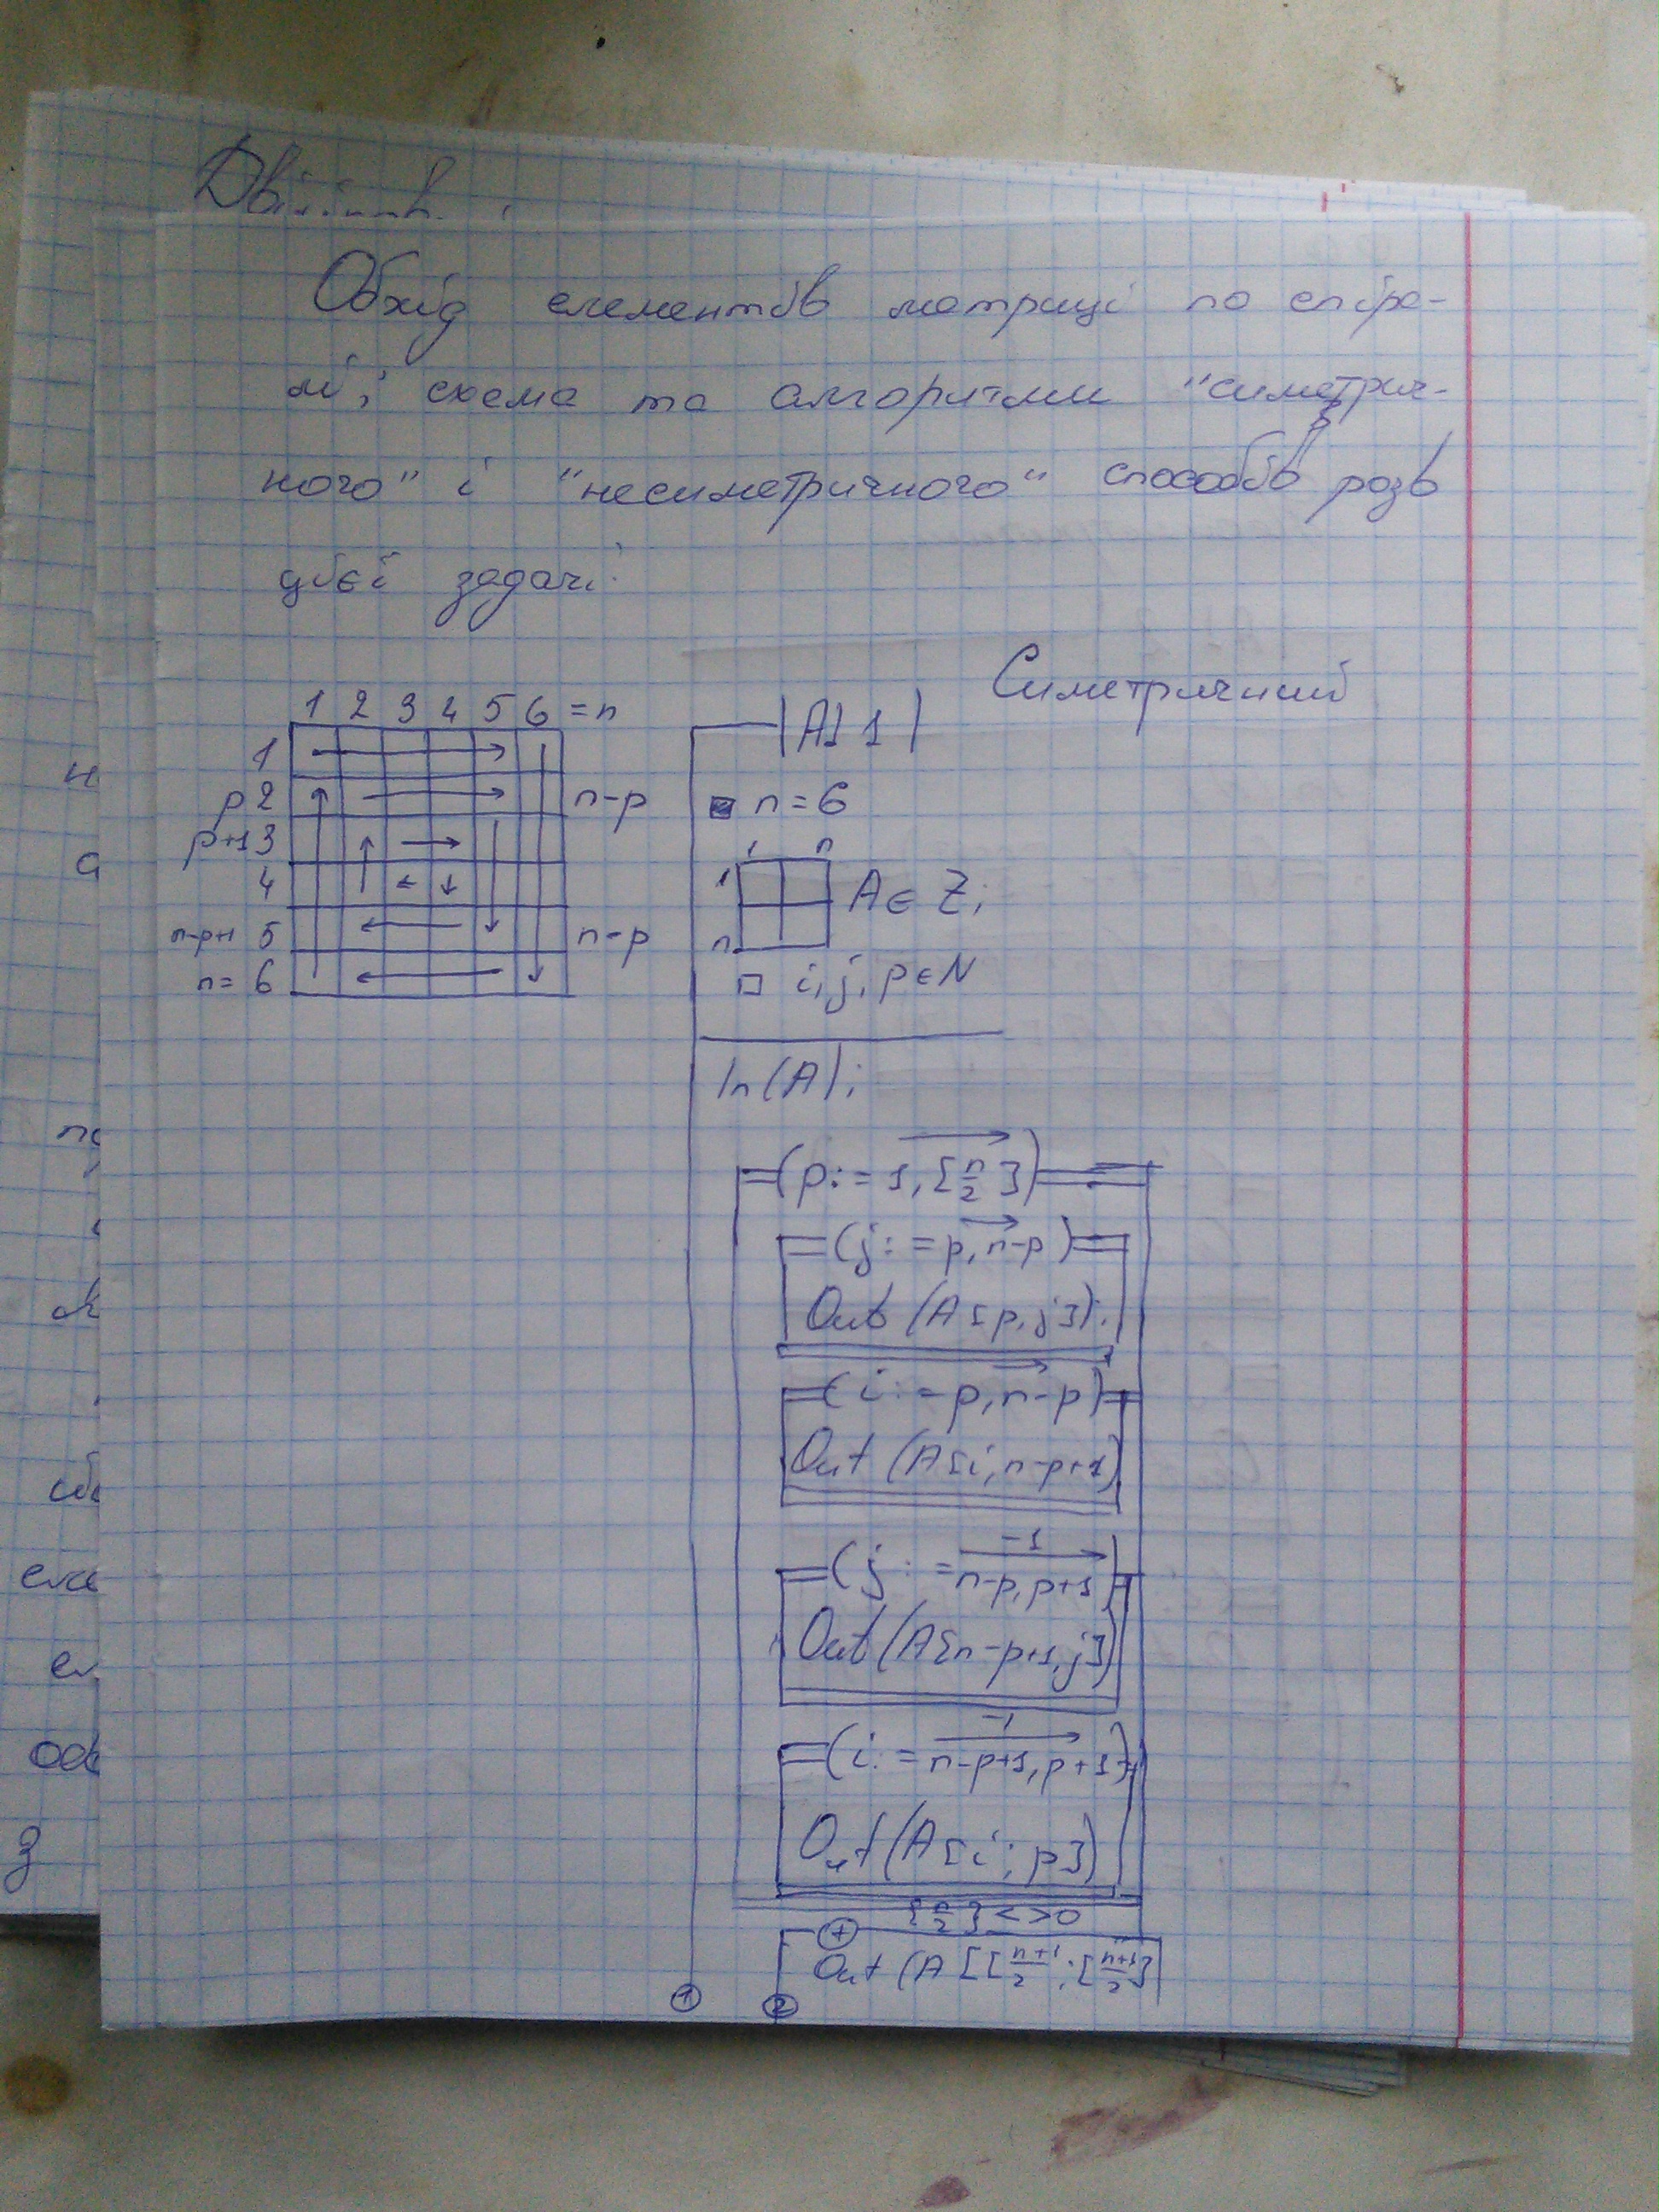 Обхід елементів матриці по спіра-
лі; схема та алгоритми "симетрич-
ного" і "несиметричного" способів розв
цієї задачі
Симетричний
1 2 3 4 5 6 = n
1
p 2 n-p
p+1 3
4
n-p+1 5 n-p
n= 6
|A]1|
n=6
1 n
1 A ∈ Z;
n
i, j, p ∈ N
In(A);
(p:=1,[n/2])
(j:=p,n-p)
Out(A[p,j]);
(i:=p,n-p)
Out(A[i,n-p+1]
-1
(j:=n-p,p+1)
Out(A[n-p+1,j]
-1
(i:=n-p+1,p+1)
Out(A[i;p])
{n/2}<>0
+
Out(A[[n+1/2;[n+1/2]
1 2
н
а
по
з